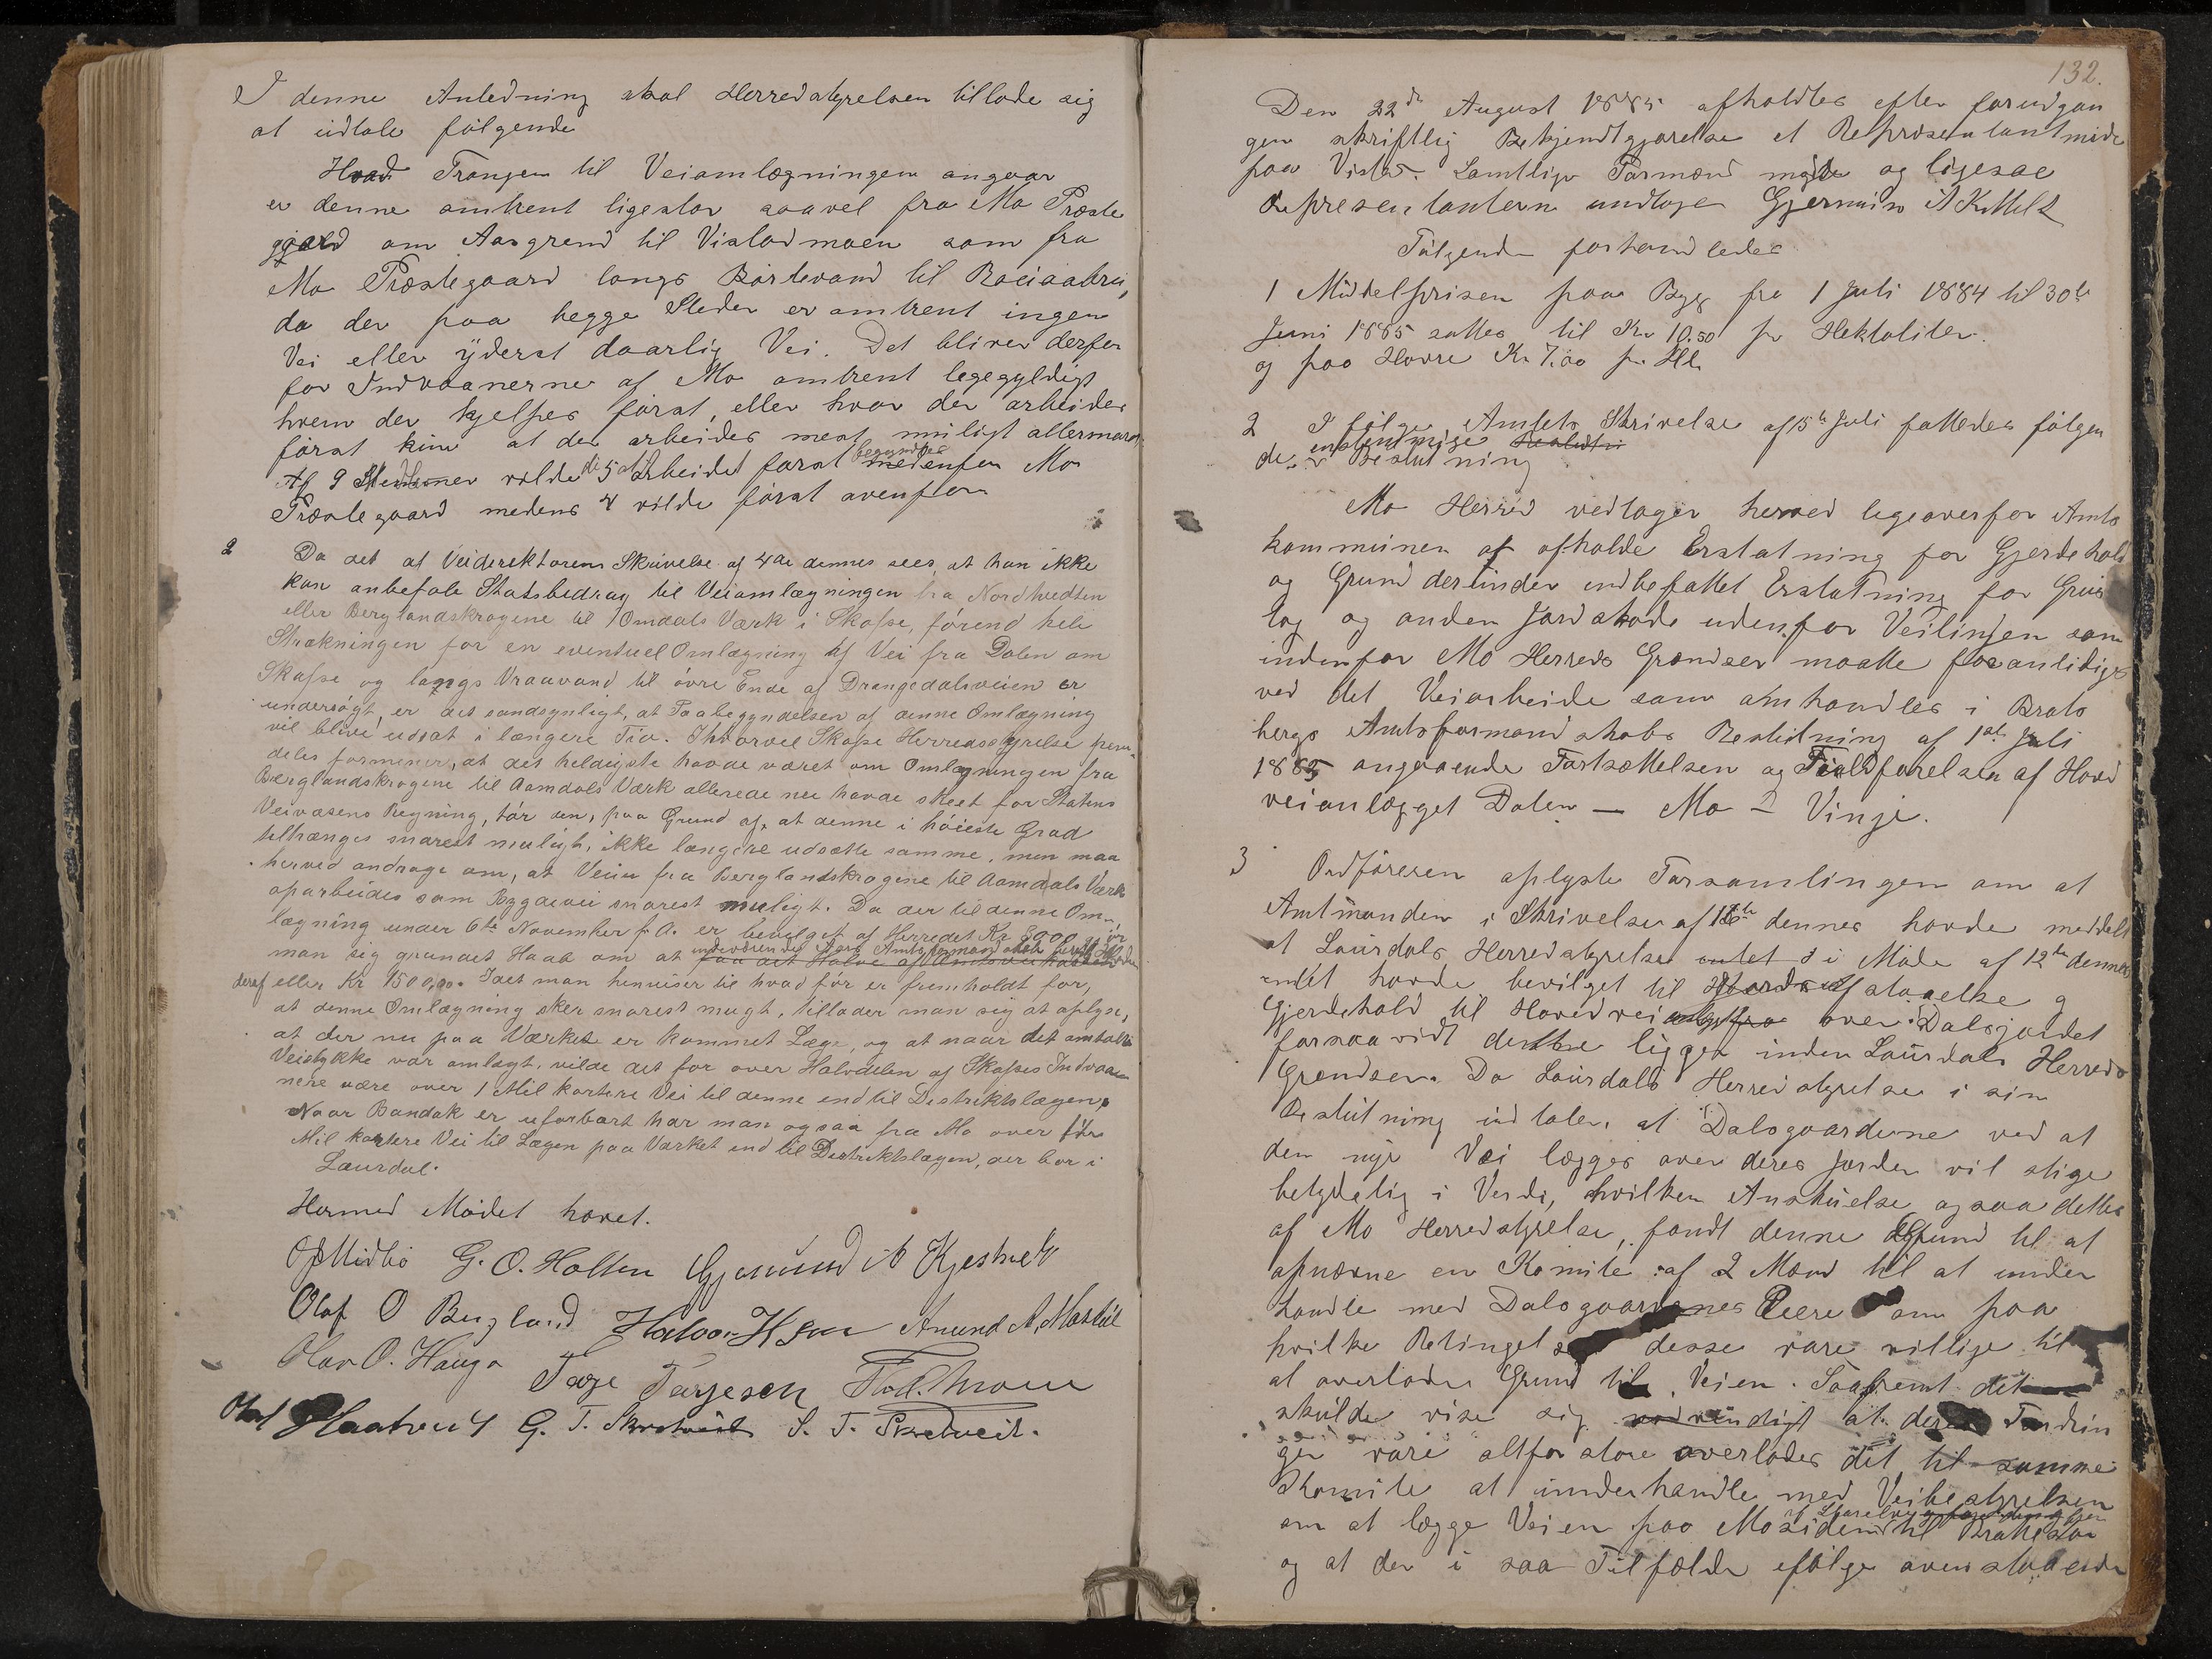 I denne Anledning skal Herredstyrelsen tillade sig
at udtale følgende
Hvad Trangen til Veiomlægningen angaar
er denne omtrent ligestor saavel fra Mo Præste
gjæld om Aasgrend til Vistadmoen som fra
Mo Præstegaard langs Børtevand til
da der paa begge Steder er omtrent ingen
Vei eller yderst daarlig Vei. Det bliver derfor
for Indvaanerne af Mo omtrent legegyldigt
hvem der hjelpes først, eller hvor der arbeides
først kun at der arbeides mest muligt allermest
begyndtes
Af 9 Stemmer vilde 5 at Arbeidet først nedenfor Mo
Præstegaard medens 4 vilde først ovenfor
2 Da det af Veidirektørens Skrivelse af 4de dennes sees, at han ikke
kan anbefale Statsbidrag til Veiomlægningen fra
eller Berglandskrogene til Omdals Værk i Skafse, førend hele
Strækningen for en eventuel Omlægning af Vei fra Dalen om
Skafse og langs Vraavand til øvre Ende af Drangedalsveien er
undersøgt, er det sandsynligt, at Paabegyndelsen af denne Omlægning
vil blive udsat i længere Tid. Ihvorvel Skafse Herredsstyrelse frem-
deles formener, at det heldigste havde været om Omlægningen fra
Berglandskrogene til Aamdals Værk allerede nu havde skeet for Statens
Veivæsens Regning, tør den, paa Grund af, at denne i høieste Grad
tiltrænges snarest muligt, ikke længere udsætte samme, men maa
herved andrage om, at Veien fra Berglandskrogene til Aamdals Værk
oparbeides som Bygdevei snarest muligt. Da der til denne Om-
lægning under 6te November f. A. er bevilget af Herredet Kr 3000 gjør
indeværende Aars Amtsformandskab
man sig grundet Haab om at faa det Halve af Amtsveikassen
deraf eller Kr 1500,00. Idet man henviser til hvad før er fremholdt for,
at denne Omlægning sker snarest mugt, tillader man sig at oplyse,
at der nu paa Værket er kommet Læge, og at naar det omtalte
Veistykke var omlagt, vilde det for over Halvdelen af Skafses Indvaa-
nere være over 1 Mil kortere Vei til denne end til Distriktslægen.
Naar Bandak er ufarbart har man ogsaa fra Mo over
Mil kortere Vei til Lægen paa Værket end til Destriktslægen, der bor i
Laurdal.
Hermed Mødet hævet.
O J Midbø G. O. Holten Gjermund A Kjeslvek
Olaf O Bergland Halvor Amund A. Mostøl
Olav O. Hauga Tarje Tarjesen
Olaf G. T. S. T. Skredveit.
132.
Den 22de August 1885 afholdtes efter forudgan
gen skriftlig Bekjendtgjørelse et Repræsentantmøde
paa Vistad. Samtlige Formænd mødte og ligesaa
Repræsentanterne undtagen Gjermund A
Følgende forhandledes
1 Middelprisen paa Byg fra 1 Juli 1884 til 30te
Juni 1885 sattes til Kr 10.50 pr Hektoliter.
og paa Havre Kr 7.00 pr. Hl.
2 I følge Amtets Skrivelse af 5te Juli fattedes følgen
enstemmige
de Beslutning
Mo Herred vedtager herved ligeoverfor Amts
kommunen at afholde Erstatning for Gjerdehold
og Grund derunder indbefattet Erstatning for Grus
tag og anden Jordskade udenfor Veilinjen som
indenfor Mo Herreds Grændser maatte foranlediges
ved det Veiarbeide som omhandles i Brats
bergs Amtsformandskabs Beslutning af 1ste Juli
1885 angaaende Fortsættelsen og Fuldførelsen af Hoved
veianlægget Dalen — Mo — Vinje.
3 Ordføreren oplyste Forsamlingen om at
Amtmanden i Skrivelse af 18de dennes havde meddelt
at Laurdals Herredstyrelse i Møde af 12te dennes
intet havde bevilget til Afstaaelse og
Gjerdehold til Hovedvei over Dalsjordet
forsaavidt dette ligger inden Laurdals Herreds
Grændser. Da Laurdals Herredstyrelse i sin
Beslutning udtaler, at Dalsgaardene ved at
den nye Vei lægges over deres Jorder vil stige
betydelig i Verdi, hvilken Anskuelse ogsaa deltes
af Mo Herredstyrelse, fandt denne Grund til at
opnævne en Komite af 2 Mænd til at under
handle med Dalsgaardenes Eiere om paa
hvilke Betingelser disse vare villige til
at overlade Grund til Veien. Saafremt det
skulde vise sig nødvendigt at deres Fordrin
ger vare altfor store overlades det til samme
Komite at underhandle med Veibestyrelsen
om at lægge Veien paa Mosiden til
og at der i saa Tilfælde ifølge ovenstaaende